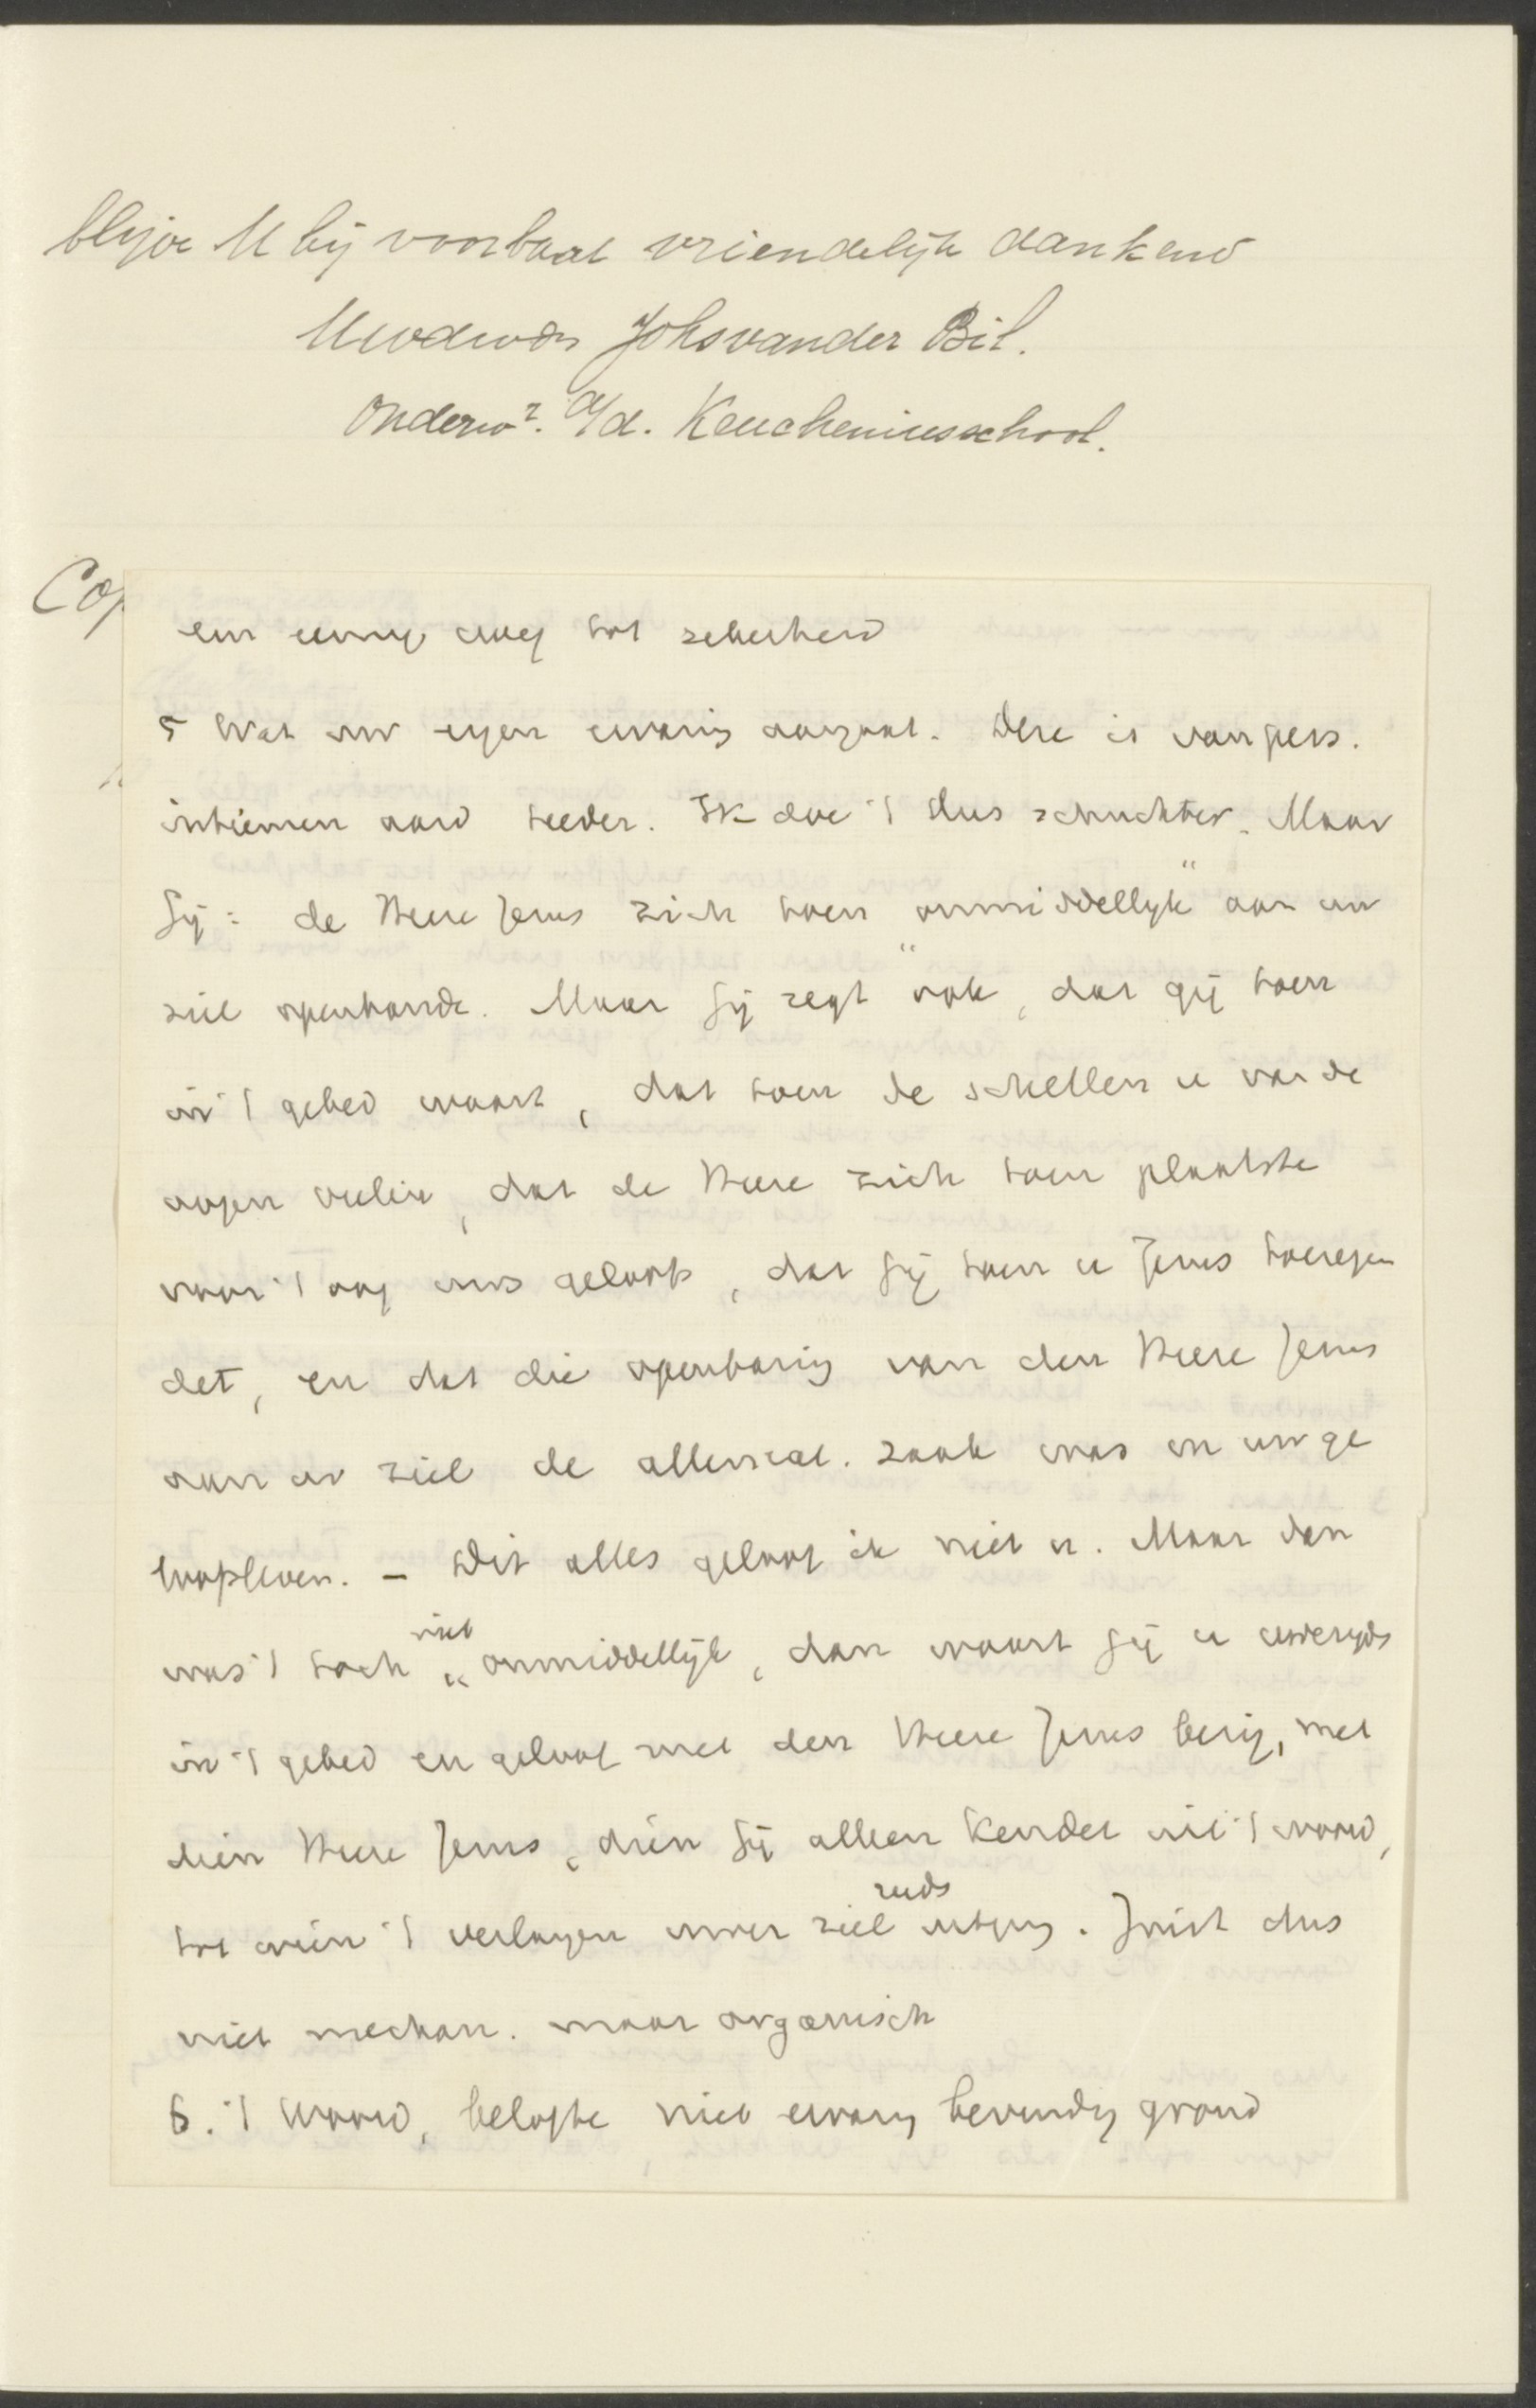 blijve U bij voorbaat vriendelijk dankend
Uwdwdr Johs van der Bil.
Onderwr. a/d. Keucheniusschool.
Cop
een eenige weg tot zekerheid
5 Wat uw eigen ervaring aangaat. Deze is van pers.
intiemen aard teeder. Ik doe 't dus schuchter. Maar
Gij: de Heere Jezus zich toen "onmiddellijk" aan uw
ziel openbaarde. Maar Gij zegt ook, dat gij toen
in 't gebed waart, dat toen de schellen u van de
oogen vielen, dat de Heere zich toen plaatste
voor 't oog uws geloofs, dat Gij toen u Jezus toeeigen
det, en dat die openbaring van den Heere Jezus
aan uw ziel de allerreal. zaak was in uw ge
loofsleven. - Dit alles geloof ik met u. Maar dan
was 't toch niet "onmiddellijk, dan waart Gij u
in 't gebed en geloof met den Heere Jezus bezig, met
dien Heere Jezus, dien Gij alleen kendet uit 't woord,
tot wien 't verlangen uwer ziel reeds uitging. Juist dus
niet mechan. maar organisch
6. 't Woord, belofte niet ervaring bevinding grond